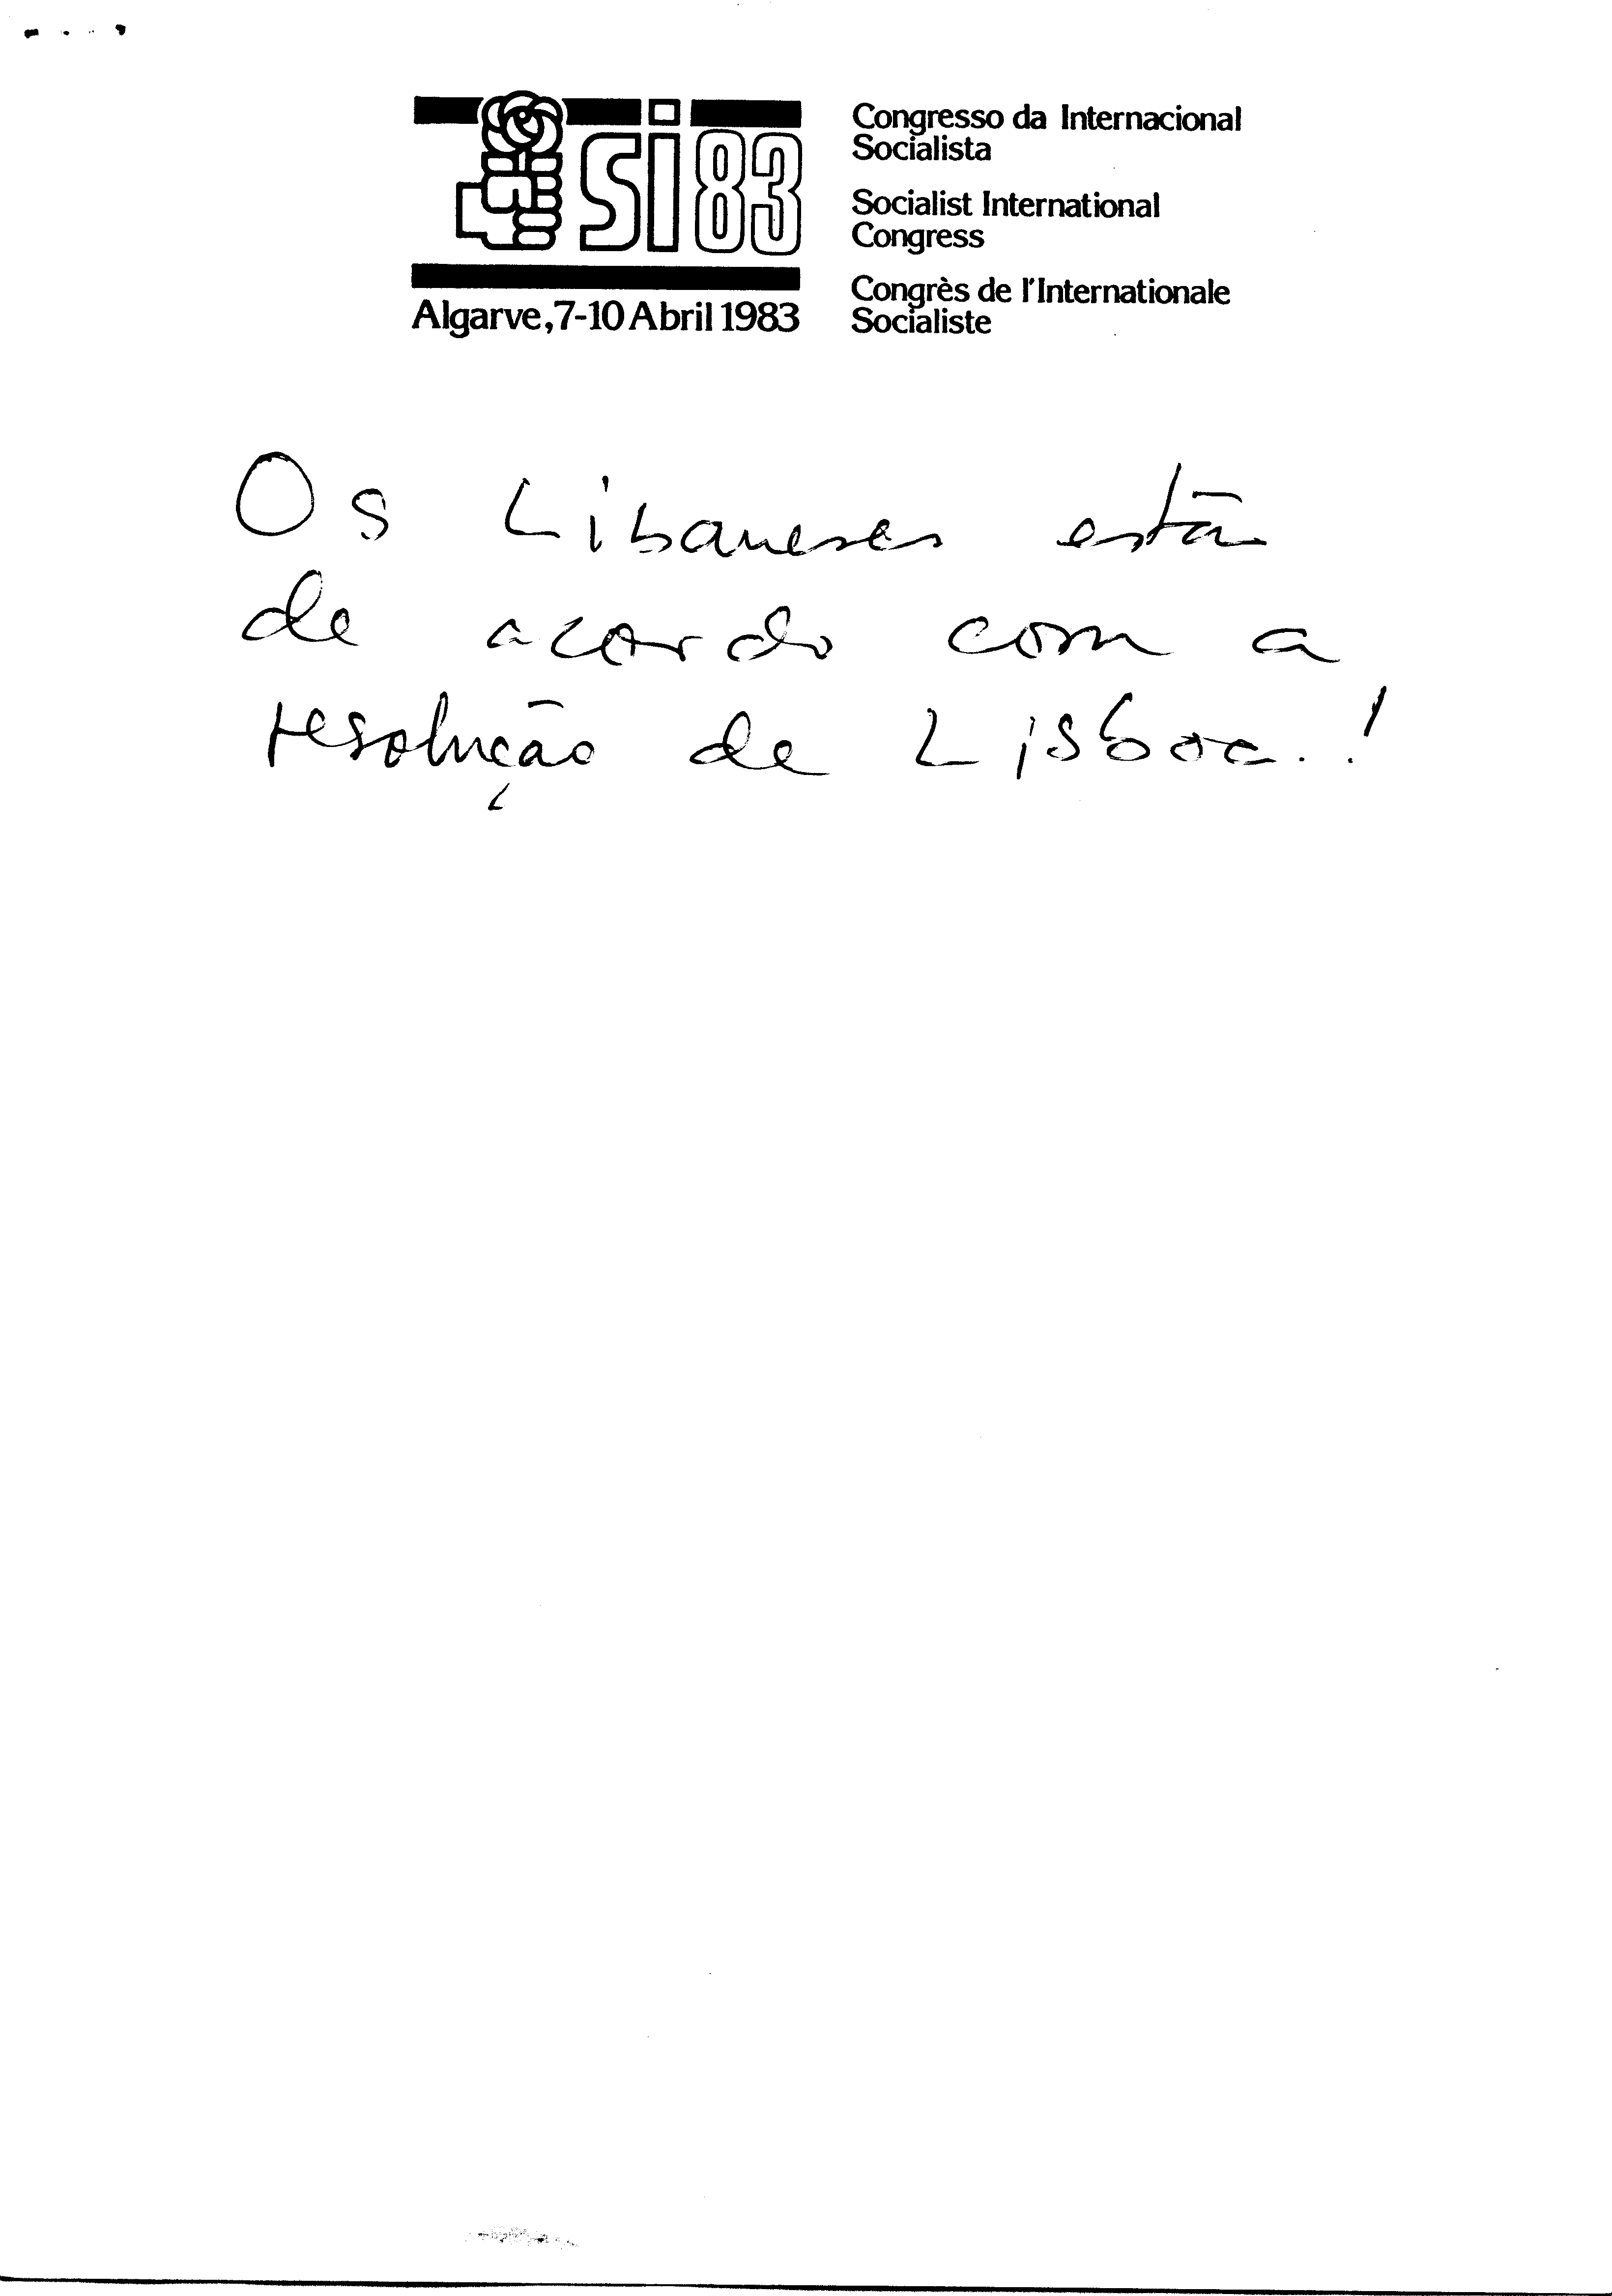 si83
Algarve, 7-10 Abril 1983
Congresso da Internacional
Socialista
Socialist International
Congress
Congrès de l'Internationale
Socialiste
Os Libaneses estão
de acordo com a
resolução de Lisboa.!